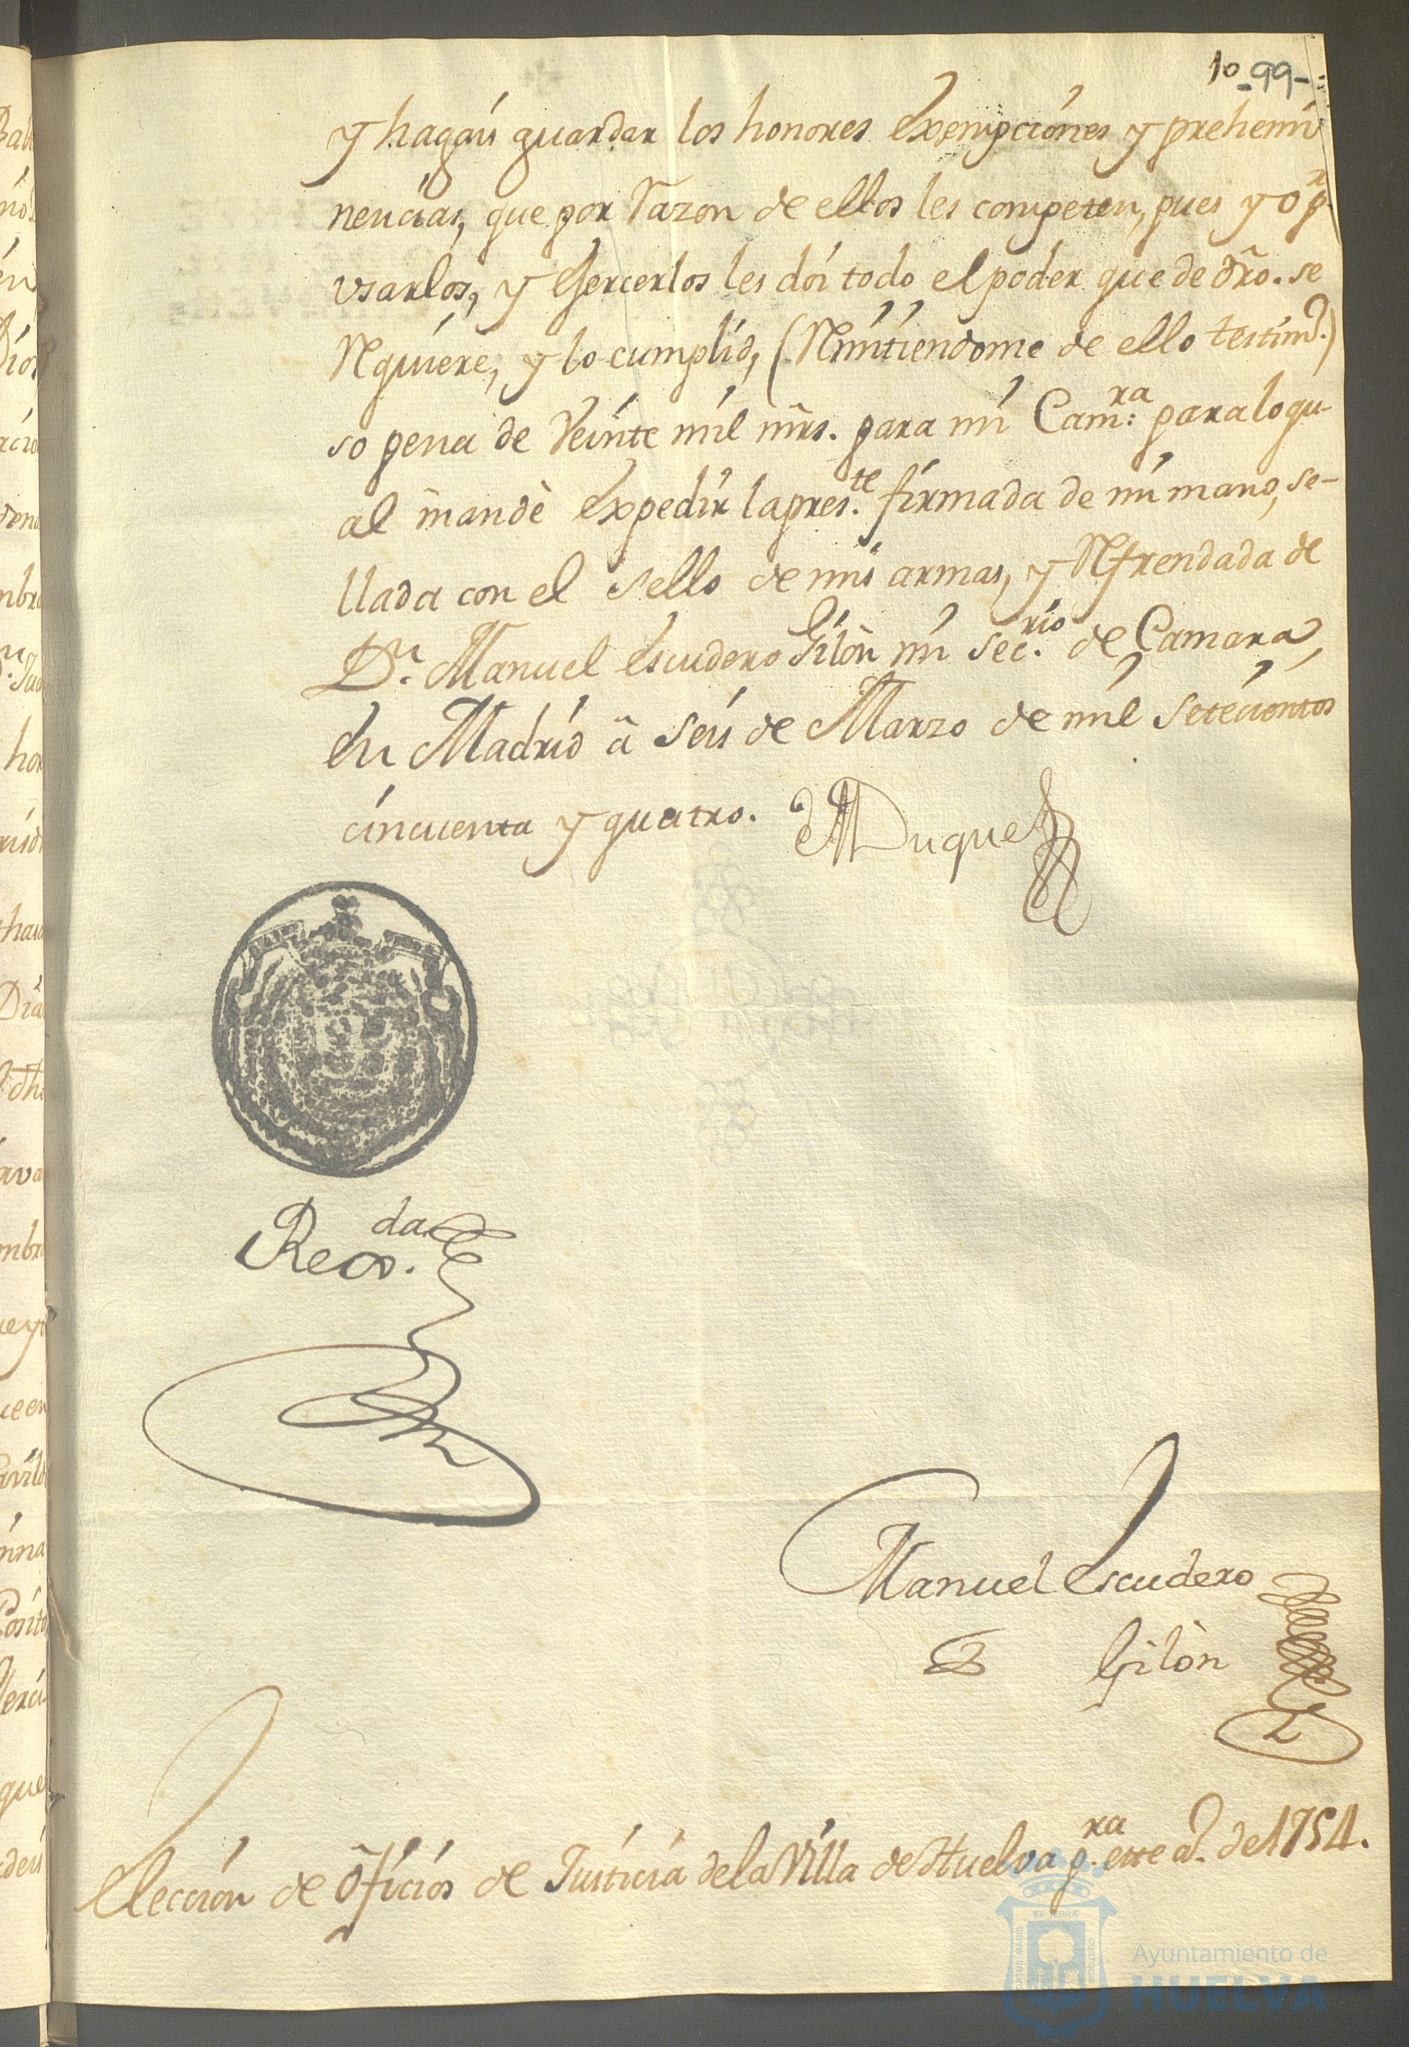 10 - 99 -
y hagais guardar los honores exempciones y prehemi
nencias, que por razon de ellos les competen, pues yo pr.
usarlos, y exercerlos les doi todo el poder que de dro. se
requiere, y lo cumplid, (remitiendome de ello testimo.)
so pena de Veinte mil mrs. para mi Cam.ra para lo qu-
al mandè expedir la pres.te firmada de mi mano, se-
llada con el sello de mis armas, y refrendada de
Dn. Manuel escudero Gilòn mi sec.rio de Camara,
en Madrid â seis de Marzo de mil setecientos
cincuenta y quatro.
el Duque
Reg.da
Manuel Escudero
Gilòn
Eleccion de Oficios de Justicia de la Villa de Huelva p.ra este a.o de 1754.
Ayuntamiento de
HUELVA